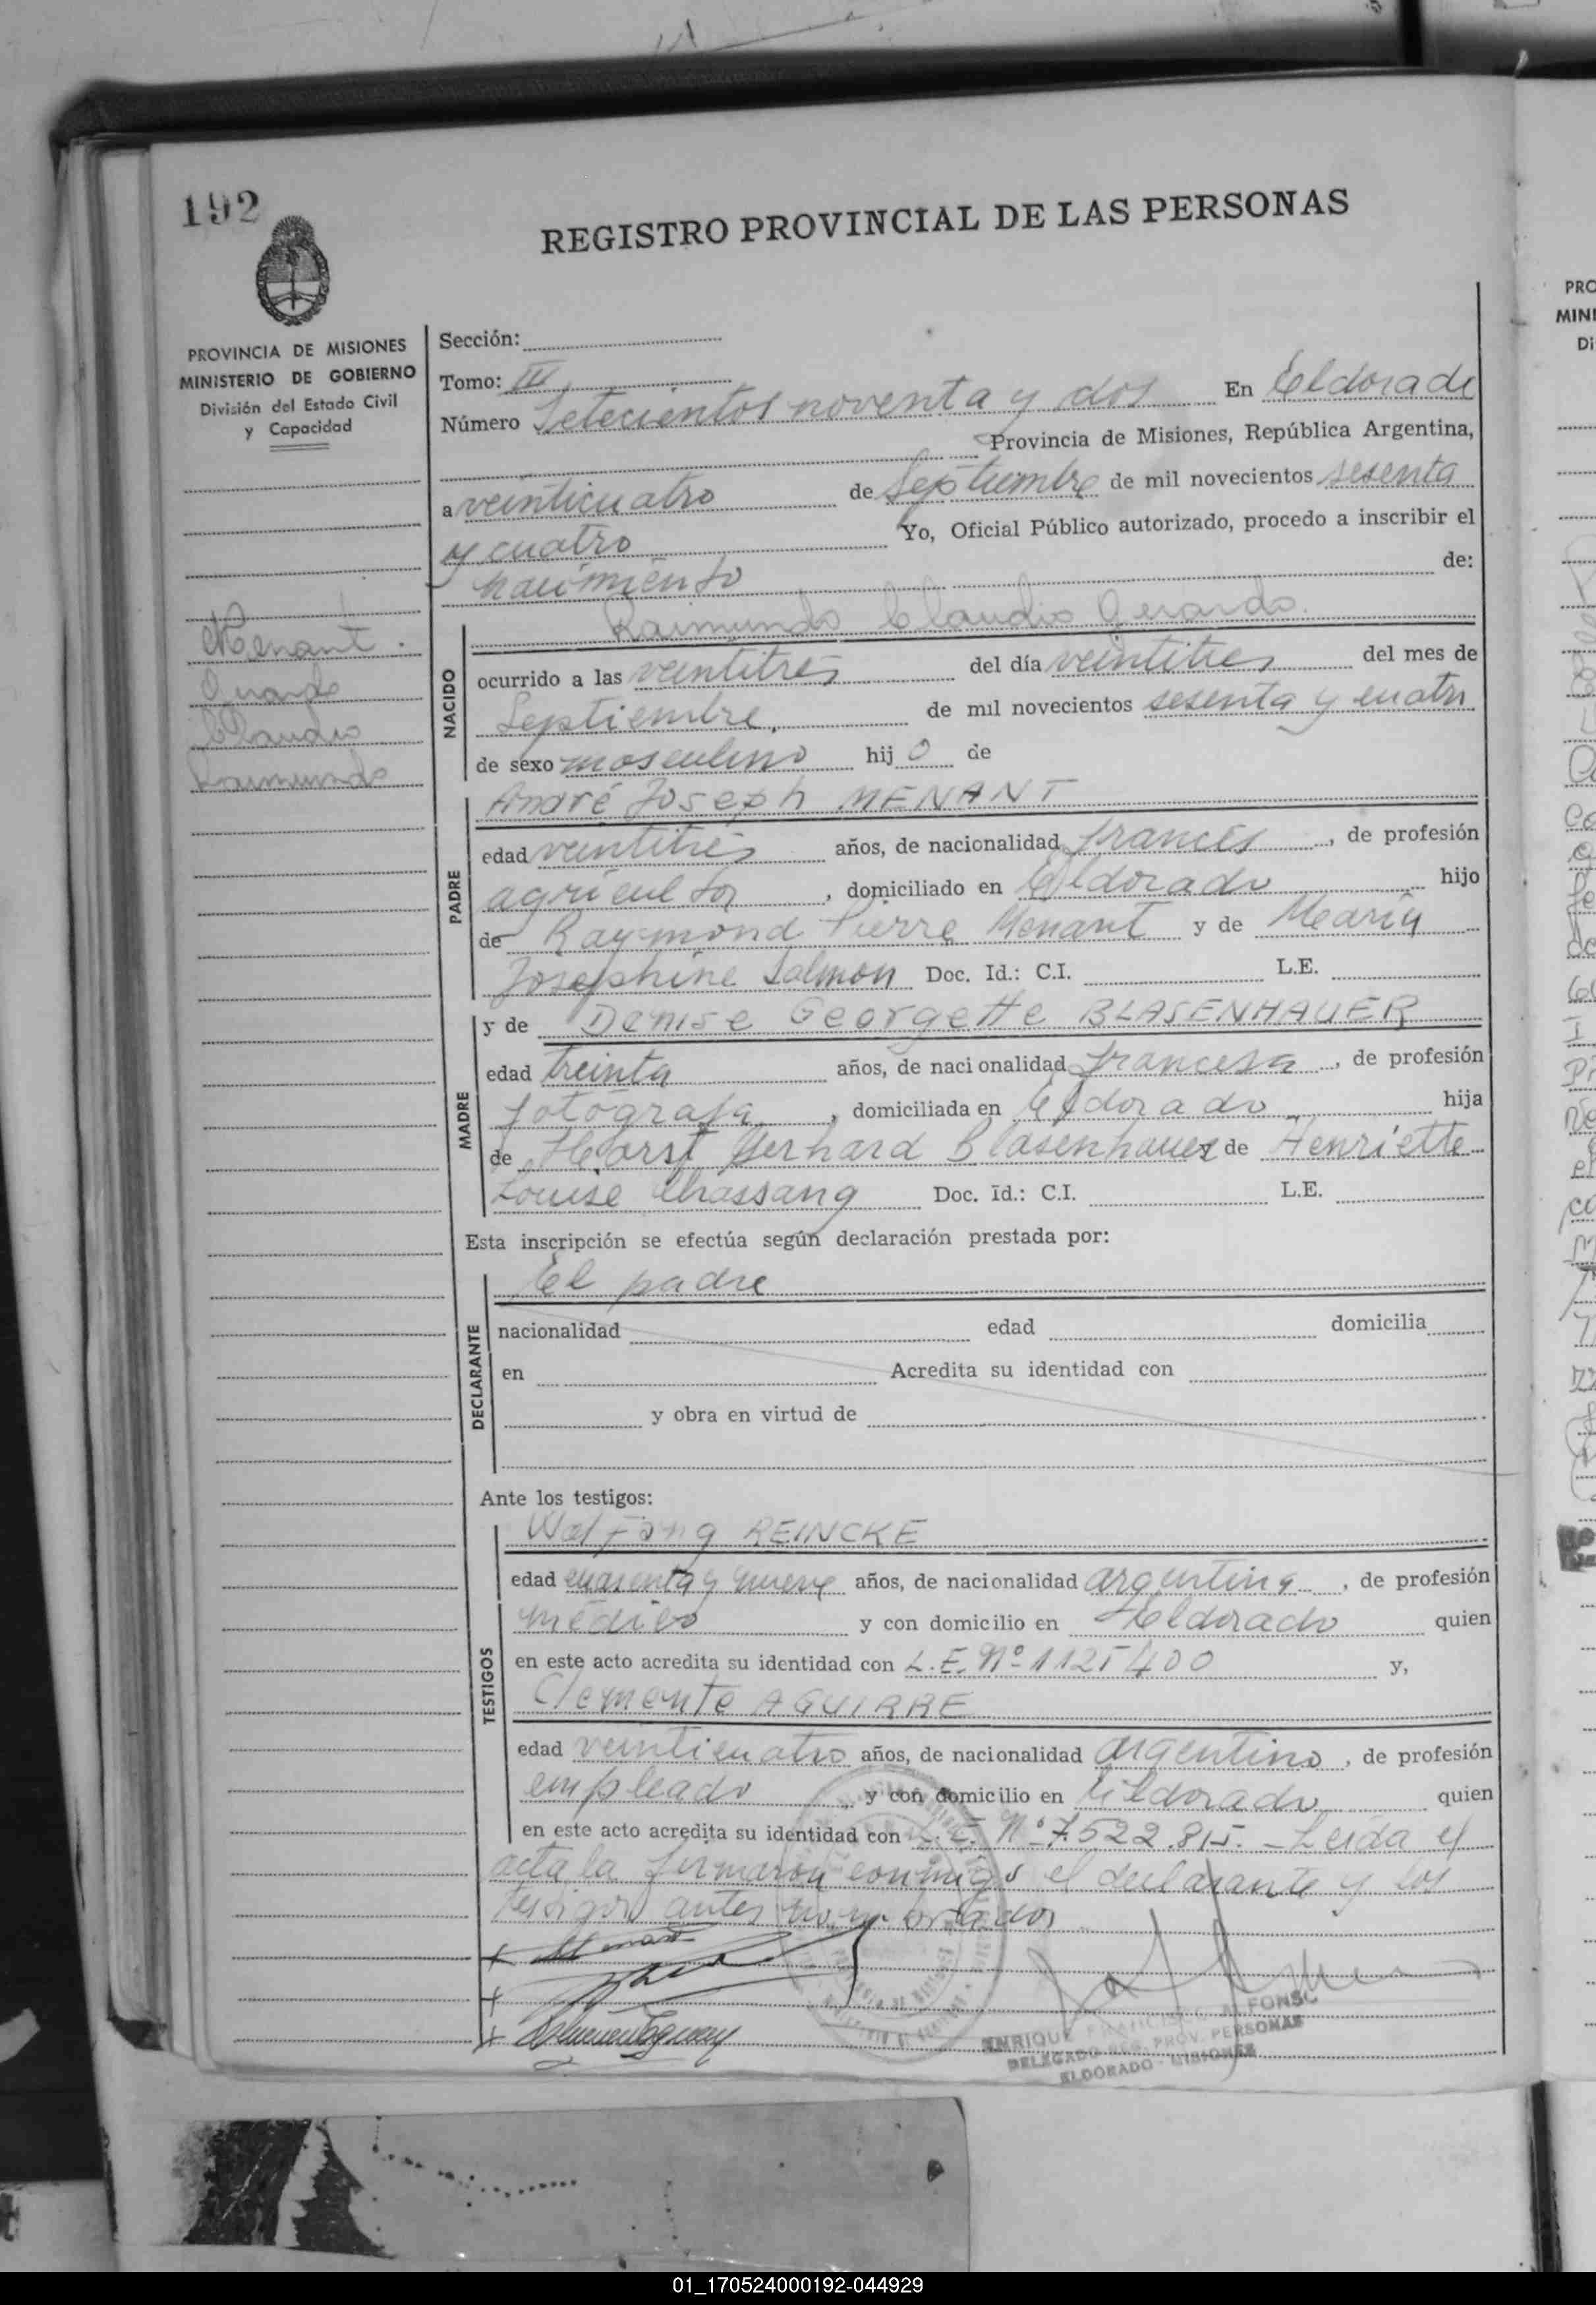 192
REGISTRO PROVINCIAL DE LAS PERSONAS
PROVINCIA DE MISIONES
MINISTERIO DE GOBIERNO
División del Estado Civil
y Capacidad
Menant
Gerardo
Claudio
Raimundo
Sección:
Tomo: IV
Número Setecientos noventa y dos En Eldorado
Provincia de Misiones, República Argentina,
a veinticuatro de Septiembre de mil novecientos sesenta
y cuatro Yo, Oficial Público autorizado, procedo a inscribir el
nacimiento de:
Raimundo Claudio Gerardo.
NACIDO
ocurrido a las veintitrés del día veintitres del mes de
Septiembre, de mil novecientos sesenta y cuatro
de sexo masculino hij o de
André Joseph MENANT
PADRE
edad veintitrés años, de nacionalidad francés, de profesión
agricultor, domiciliado en Eldorado hijo
de Raymond Pierre Menant y de María
Josephine Salmon Doc. Id.: C.I. L.E.
y de Denise Georgette BLASENHAUER
MADRE
edad treinta años, de nacionalidad francesa, de profesión
fotógrafa, domiciliada en Eldorado hija
de Horst Gerhard Blasenhauer y de Henriette
Louise Chassang Doc. Id.: C.I. L.E.
Esta inscripción se efectúa según declaración prestada por:
El padre
DECLARANTE
nacionalidad edad domicilia
en Acredita su identidad con
y obra en virtud de
Ante los testigos:
Wolfang REINCKE
TESTIGOS
edad cuarenta y nueve años, de nacionalidad argentina, de profesión
médico y con domicilio en Eldorado quien
en este acto acredita su identidad con L.E. Nº 1125400 y,
Clemente AGUIRRE
edad veinticuatro años, de nacionalidad argentino, de profesión
empleado y con domicilio en Eldorado quien
en este acto acredita su identidad con L.E. Nº 7.522.815. - Leida el
acta la firmaron conmigo el declarante y los
testigos antes nombrados
ENRIQUE FRANCISCO ALFONSO
DELEGADO REG. PROV. PERSONAS
ELDORADO - MISIONES
01_170524000192-044929